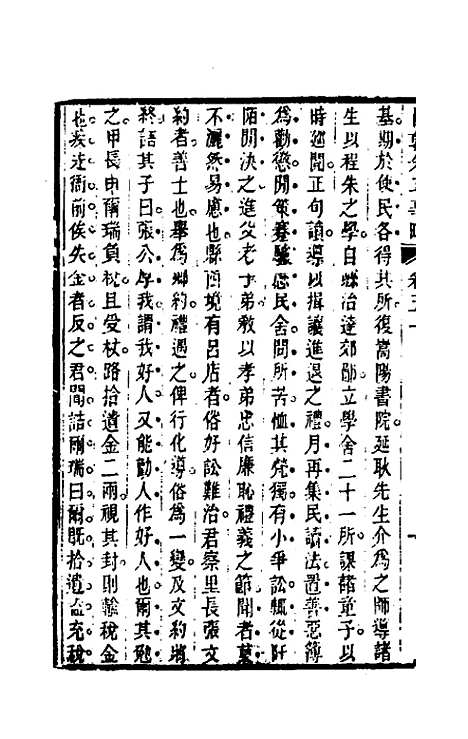 國朝先正事略 卷五十
基期於使民各得其所復嵩陽書院延耿先生介為之師導諸
生以程朱之學自縣治達郊鄙立學舍二十一所課諸童子以
時巡閱正句讀導以揖讓進退之禮月再集民讀法置善惡簿
為勸懲閒策蹇驢慰民舍問所苦恤其煢獨有小爭訟輒從阡
陌閒決之進父老子弟敎以孝弟忠信廉恥禮義之節聞者莫
不灑然易慮也縣西境有呂店者俗好訟難治君察里長張文
約者善士也舉為鄉約禮遇之俾行化導俗為一變及文約將
終語其子曰張公与我謂我好人又能勸人作好人也爾其勉
之甲長申爾瑞負稅且受杖路拾遺金二兩視其封則輸稅金
也疾近衙前俟失金者反之君聞詰爾瑞曰爾旣拾遺盍充稅